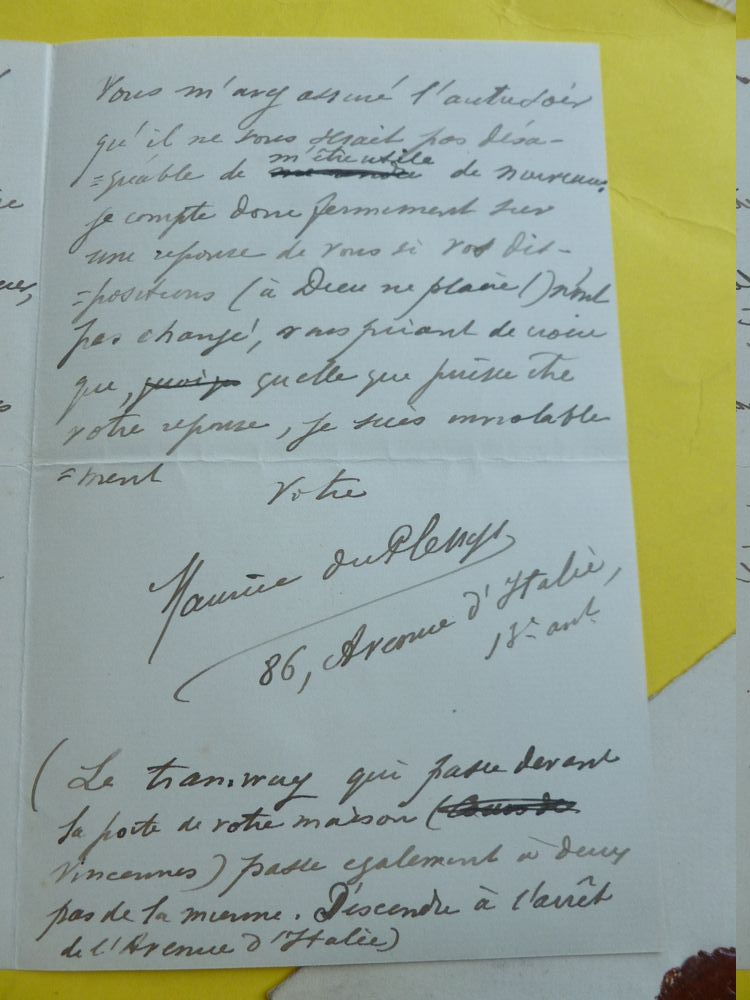 Vous m'avez assuré l'autre soir
qu'il ne vous serait pas désa-
=gréable de m'être utile de nouveau,
je compte donc fermement sur
une reponse de vous si vos dis-
=positions (à Dieu ne plaise!) n'ont
pas changé, vous priant de croire
que, quelle que puisse être
votre reponse, je suis inviolable
=ment
Votre
Maurice du Plessys
86, Avenue d'Italie,
13e arrt
(Le tramway qui passe devant
la porte de votre maison (
Vincennes) passe egalement à deux
pas de la mienne. Descendre à l'arrêt
de l'Avenue d'Italie)